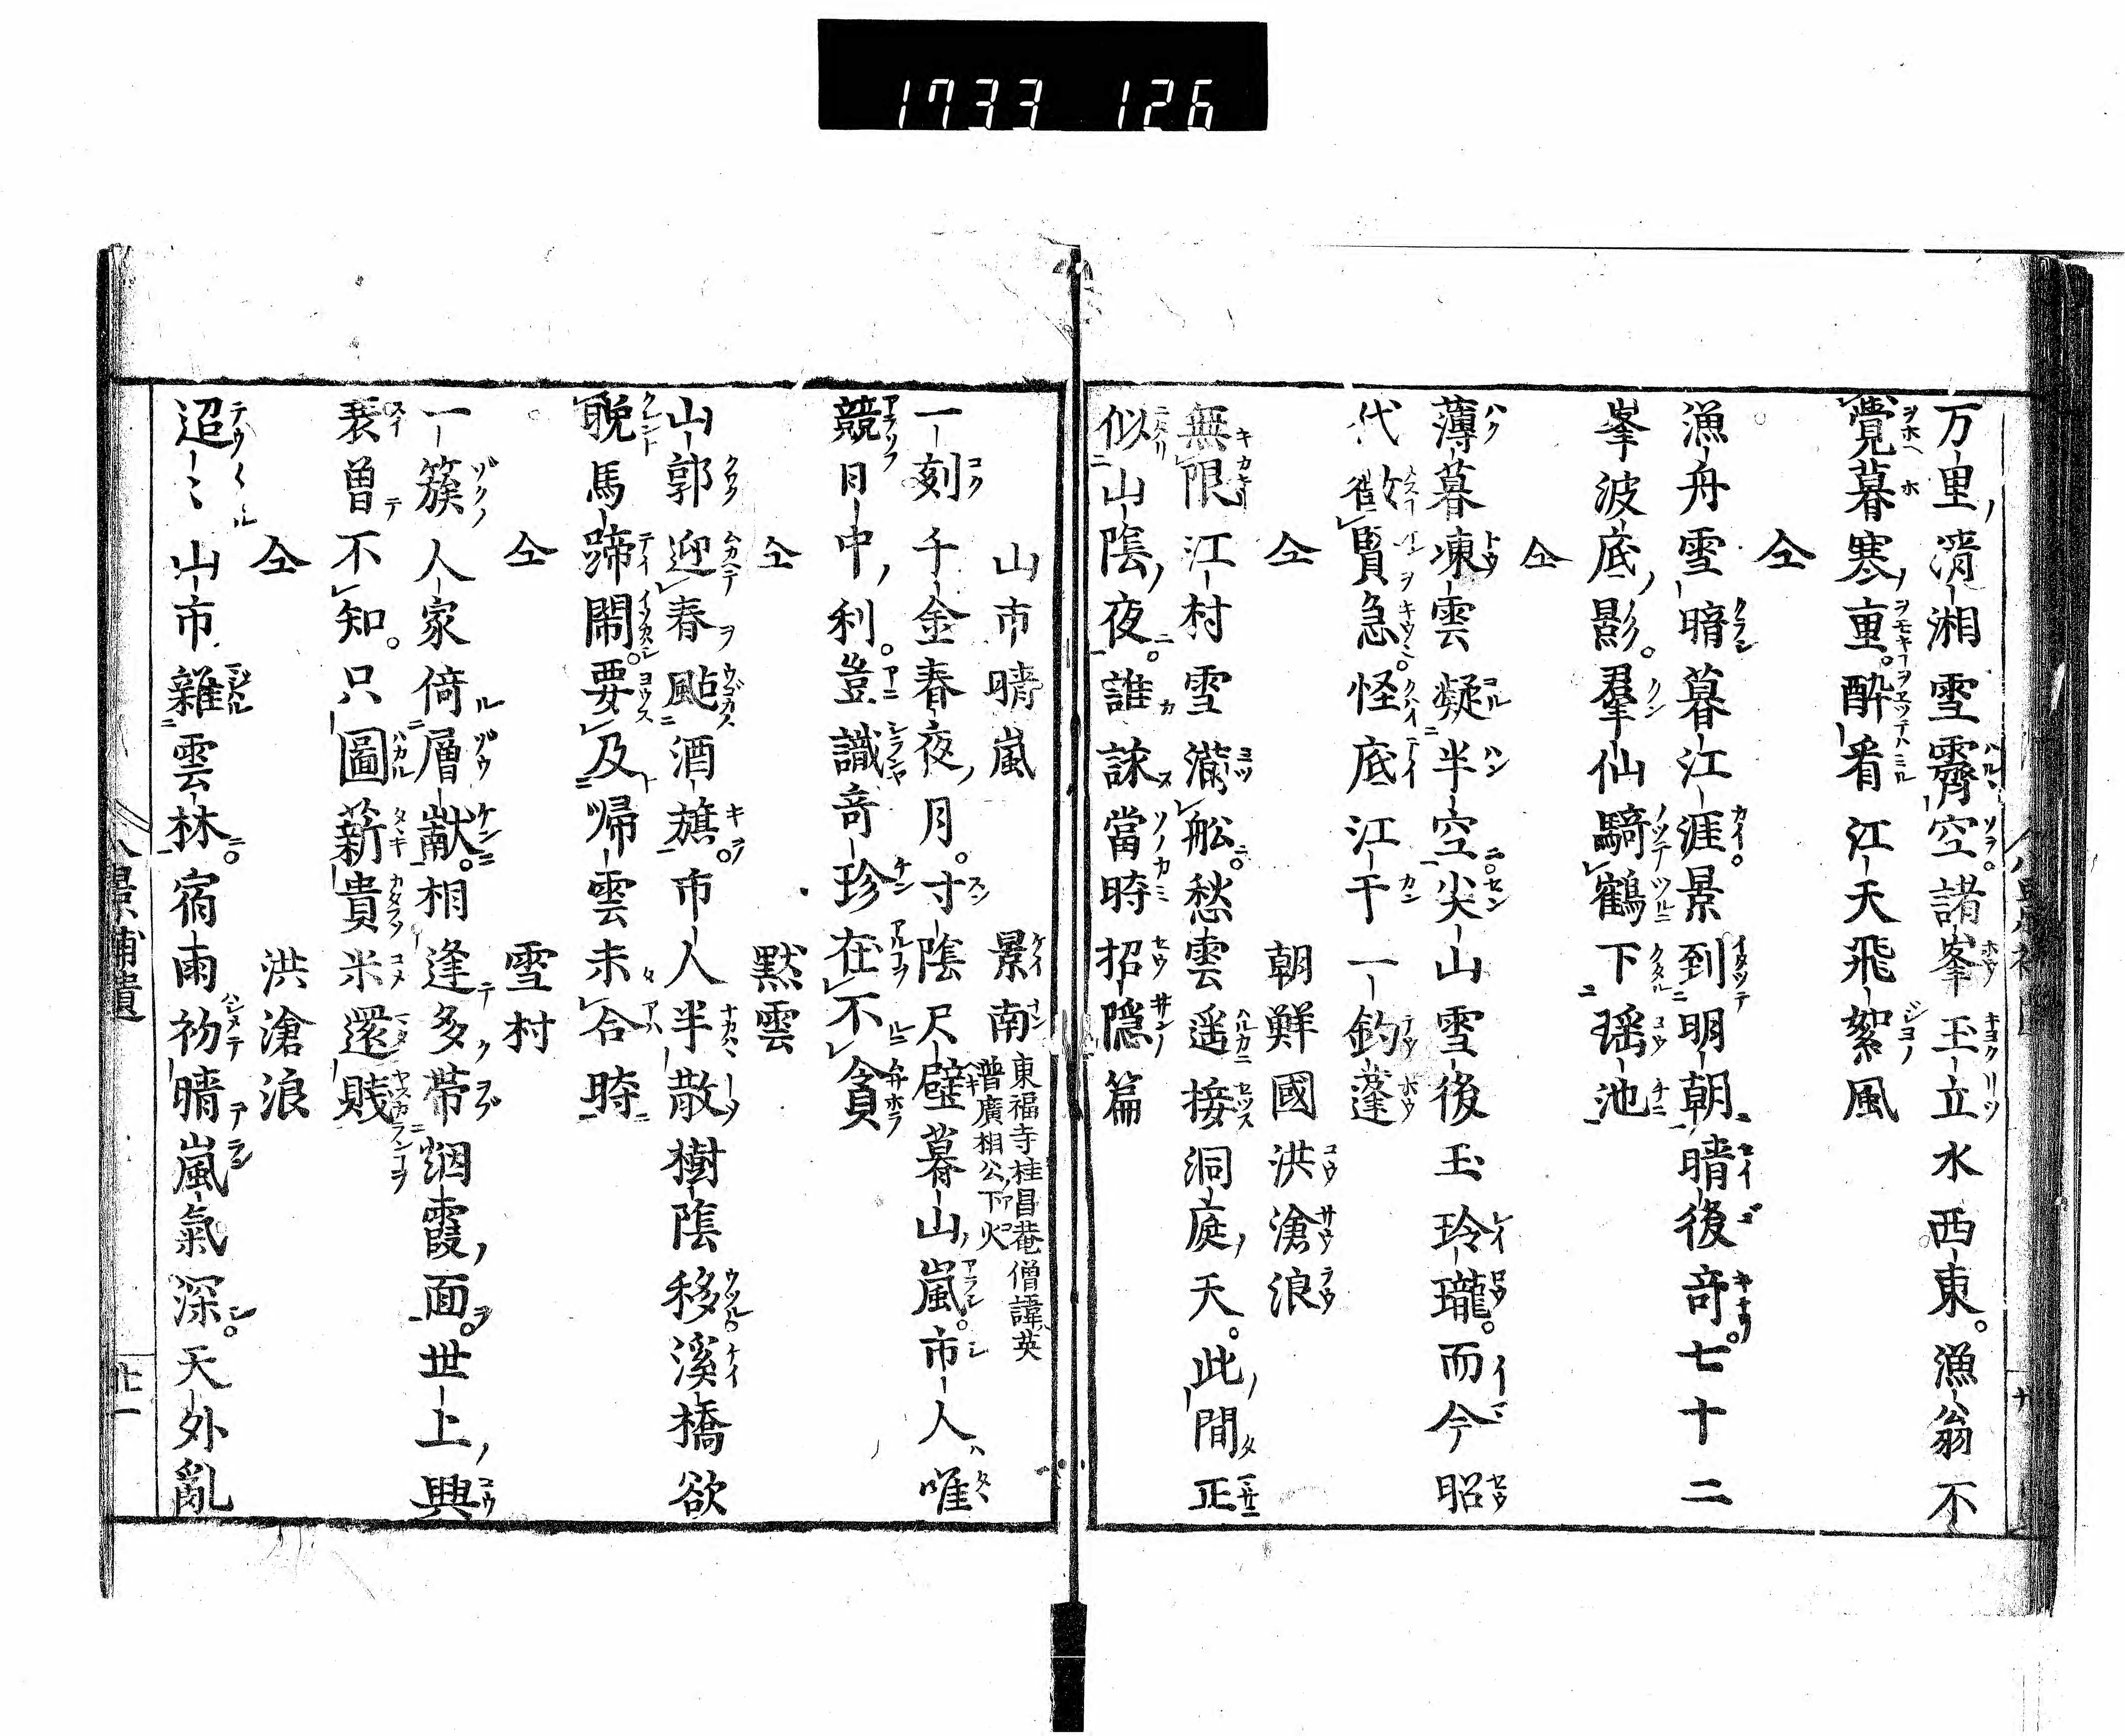 1733 126
万里清湘雪霽空諸峯玉立水西東漁翁不
覺暮寒重酔看江天飛絮風
仝
漁舟雪暗暮江涯景到明朝晴後竒七十二
峯波底影羣仙騎鶴下瑶池
仝
薄暮凍雲凝半空尖山雪後玉玲瓏而今昭
代徴賢急怪底江干一釣蓬
仝 朝鮮國洪滄浪
無限江村雪滿舩愁雲遥接洞庭天此間正
似山隂夜誰詠當時招隠篇
山市晴嵐 景南 東福寺桂昌菴僧諱英
普廣相公下火
一刻千金春夜月寸隂尺璧暮山嵐市人唯
競日中利豈識竒珍在不貪
仝 黙雲
山郭迎春颭酒旗市人半散樹隂移溪橋欲
晩馬蹄閙要及帰雲未合時
仝 雪村
一簇人家倚層巘相逢多帯烟霞面世上興
衰曽不知只圖薪貴米還賤
仝 洪滄浪
迢〻山市雜雲林宿雨初晴嵐氣深天外亂
八景補遺 廿一